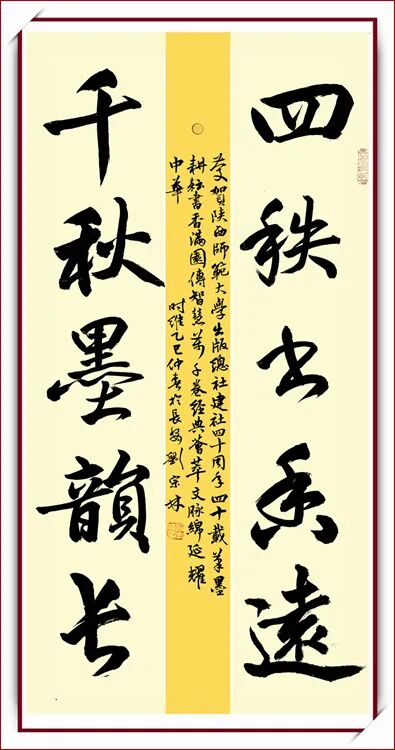 四秩书香遠
慶賀陕西師範大學出版總社建社四十周年四十載筆墨
耕耘書香滿園傳智慧萬千卷經典薈萃文脉綿延耀
中華
时維乙巳仲春於長安劉宗林
千秋墨韻长